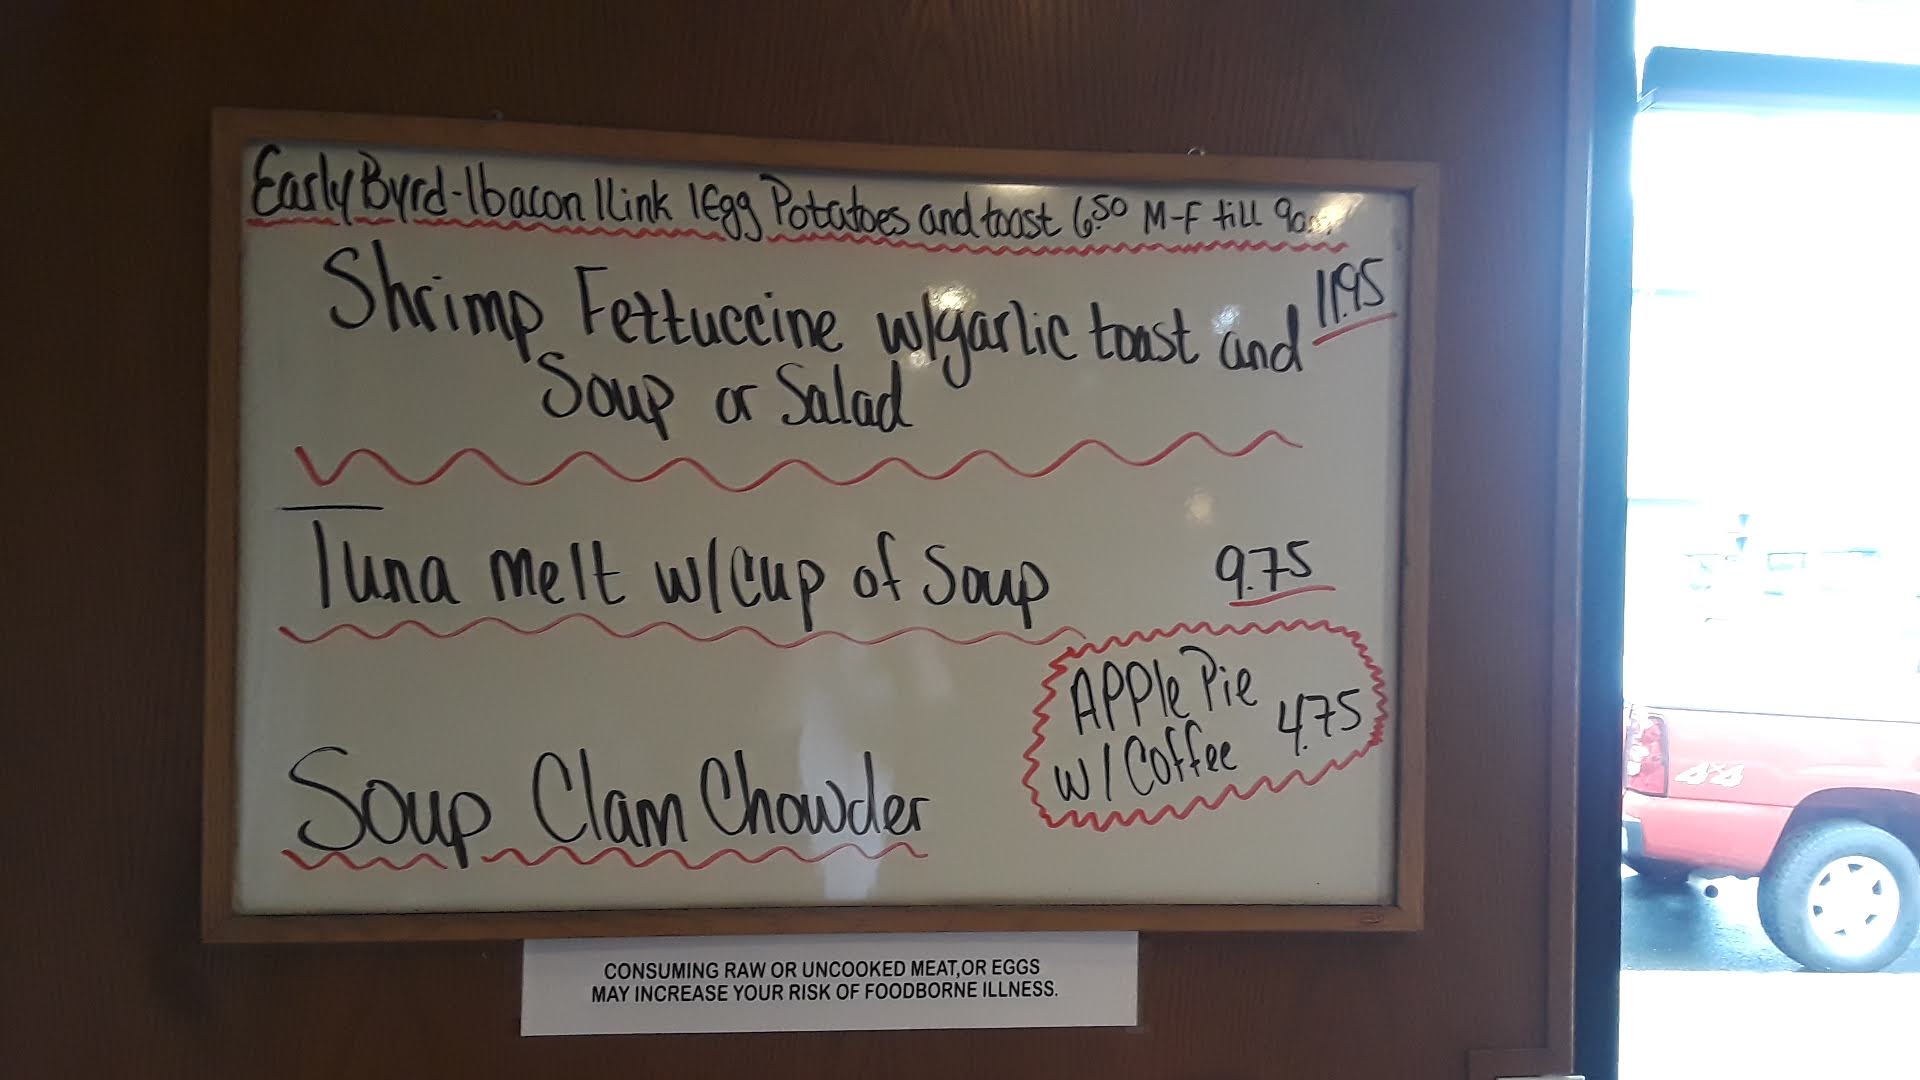 Early Byrd-1bacon 1link 1Egg Potatoes and toast 6.50 M-F till 9am
Shrimp Fettuccine w/garlic toast and 11.95
Soup or Salad
Tuna melt w/cup of Soup 9.75
APPle Pie
w/Coffee 4.75
Soup Clam Chowder
CONSUMING RAW OR UNCOOKED MEAT,OR EGGS
MAY INCREASE YOUR RISK OF FOODBORNE ILLNESS.
4x4